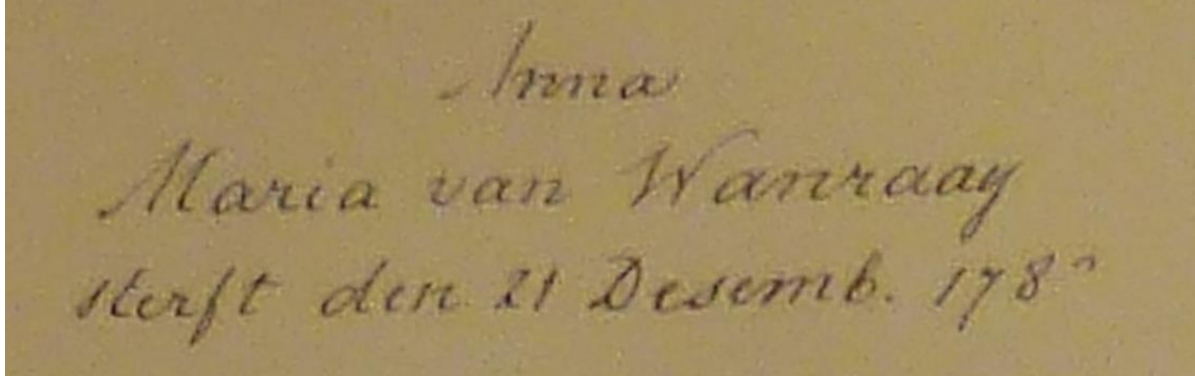 Anna
Maria van Wanraay
sterft den 21 Desemb.